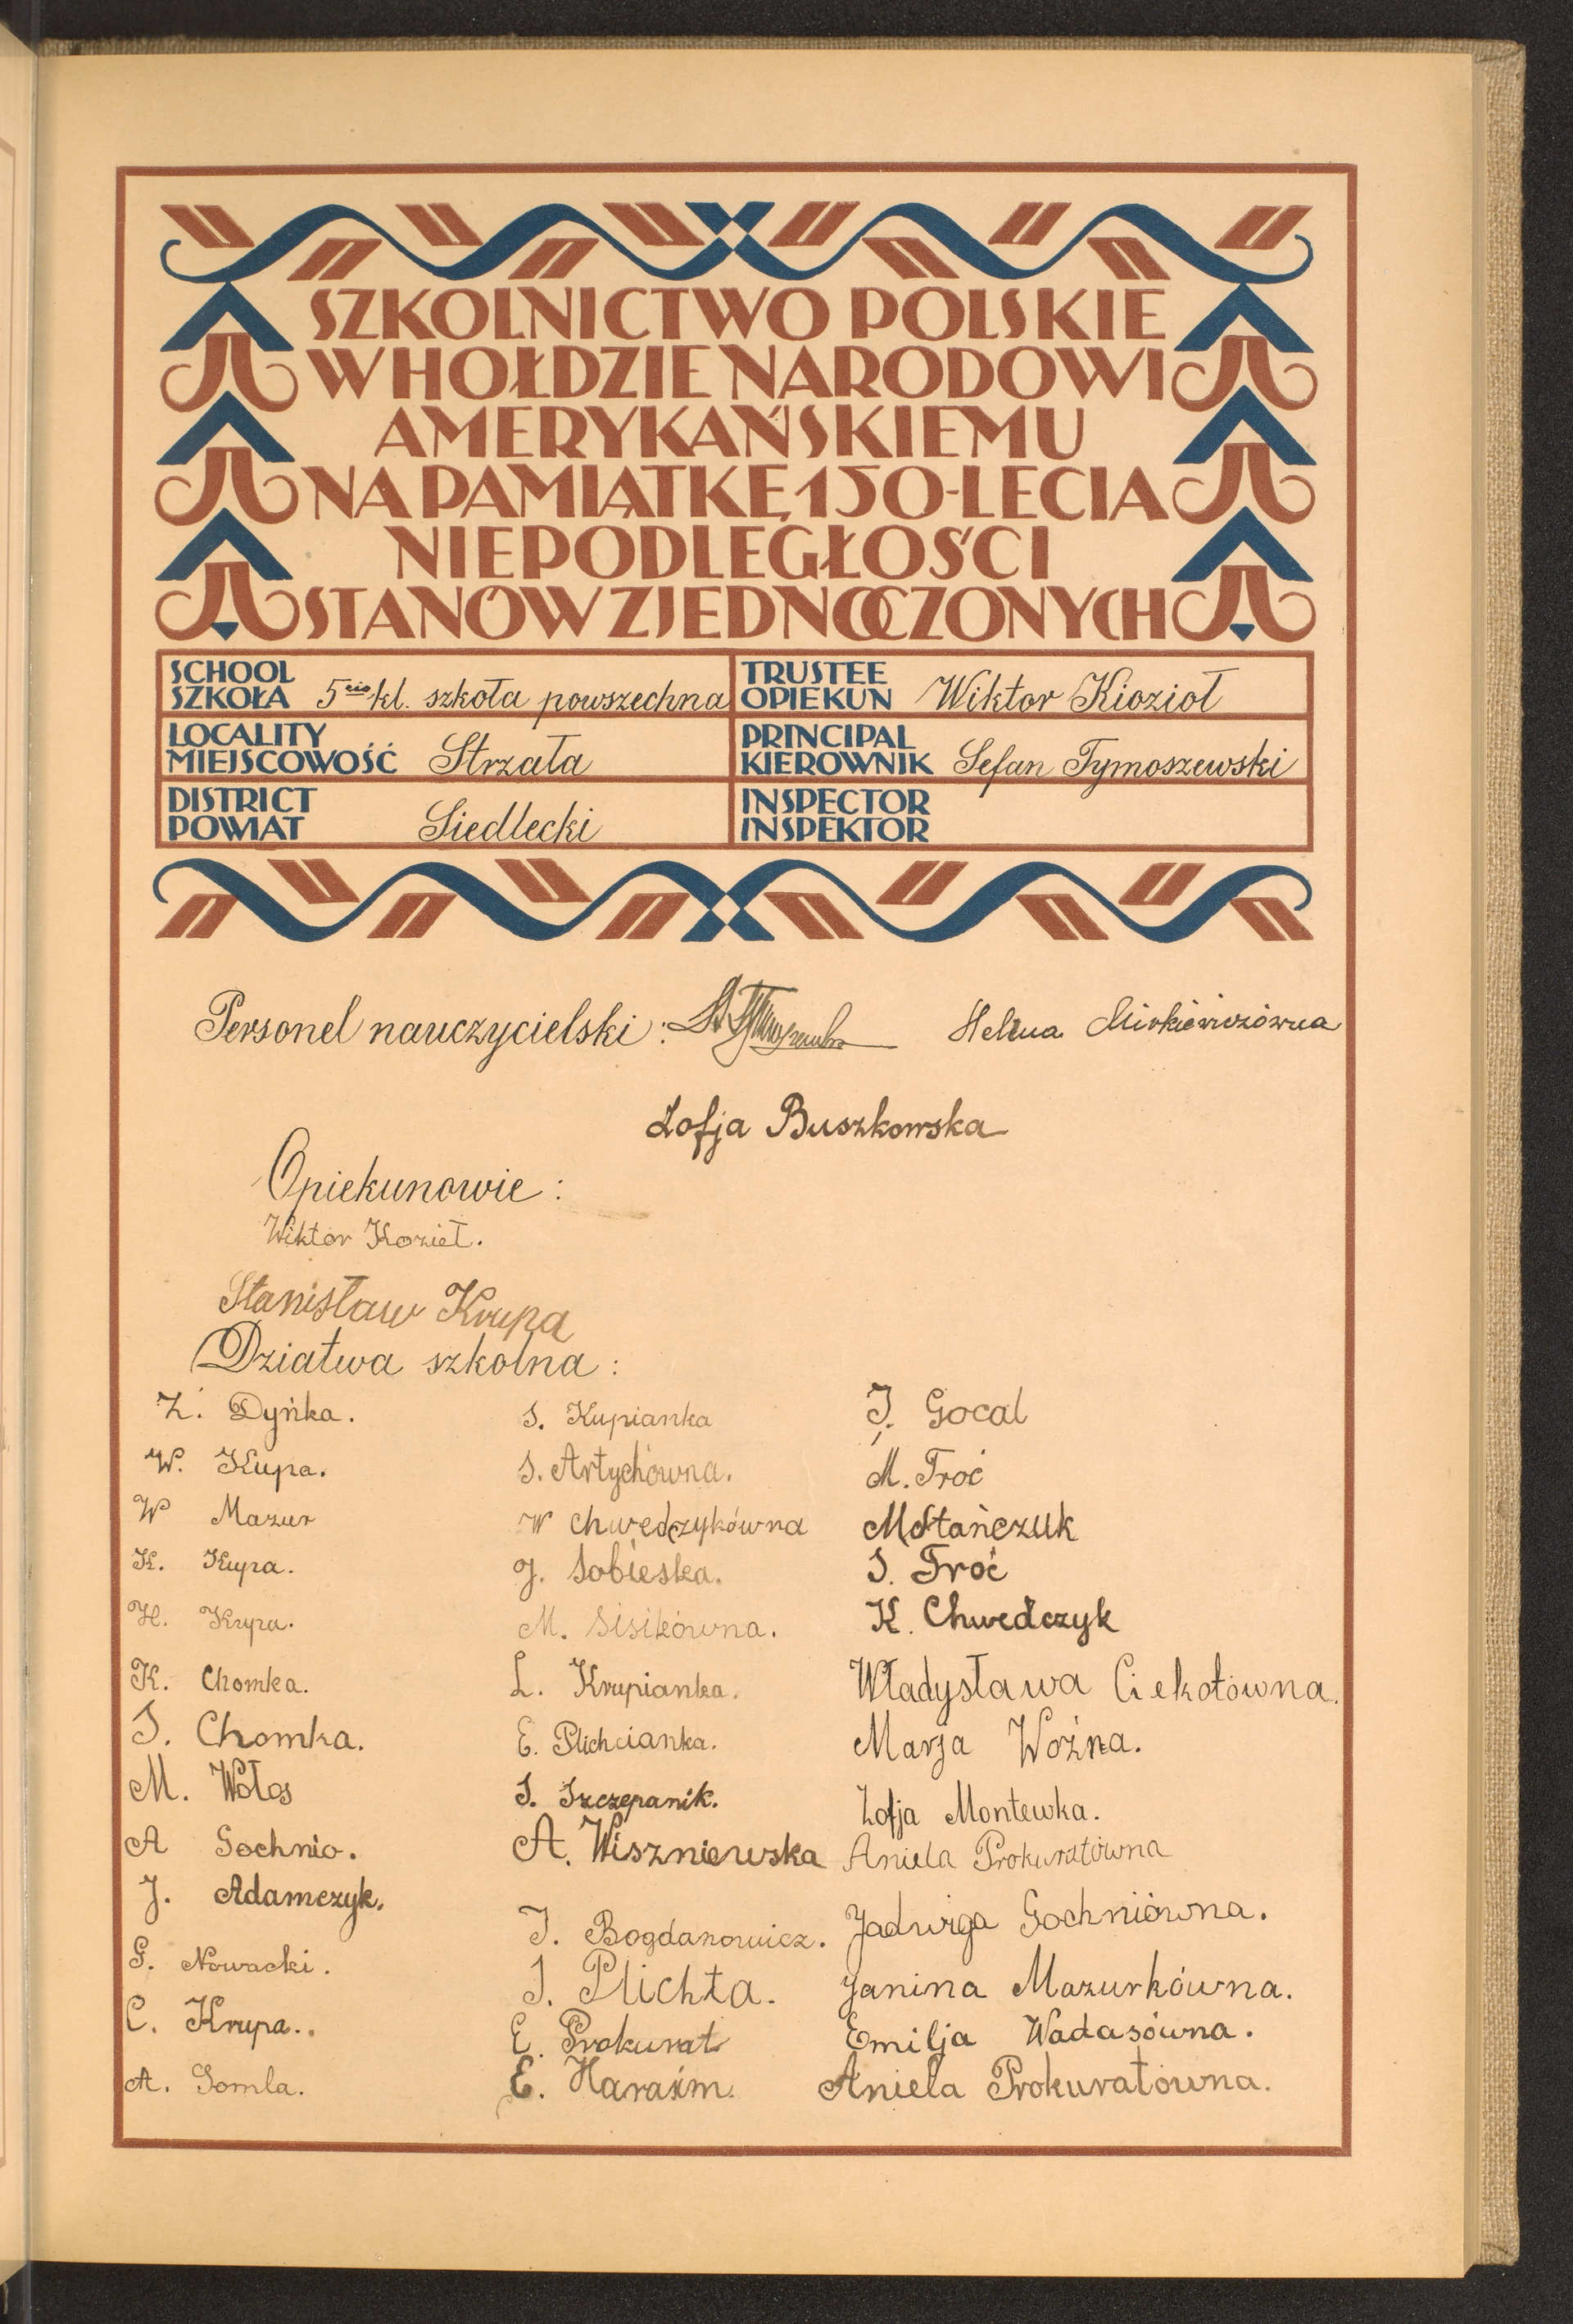 SZKOLNICTWO POLSKIE
W HOŁDZIE NARODOWI
AMERYKAŃSKIEMU
NA PAMIĄTKĘ 150-LECIA
NIEPODLEGŁOŚCI
STANÓW ZJEDNOCZONYCH
SCHOOL
SZKOŁA 5cio kl. szkoła powszechna
TRUSTEE
OPIEKUN Wiktor Kiozioł
LOCALITY
MIEJSCOWOŚĆ Strzała
PRINCIPAL
KIEROWNIK Sefan Tymoszewski
DISTRICT
POWIAT Siedlecki
INSPECTOR
INSPEKTOR
Personel nauczycielski: Helena Mirkiewiczówna
Zofja Buszkowska
Opiekunowie:
Wiktor Kozieł.
Stanisław Krupa
Dziatwa szkolna:
Z. Dyńka.
W. Kupa.
W Mazur
K. Kupa.
H. Krupa.
K. Chomka.
J. Chomka.
M. Wołos
A Sochnio.
J. Adamczyk.
G. Nowacki.
C. Krupa..
A. Somla.
S. Kupianka
S. Artychówna.
W Chwedczykówna
J. Sobieska.
M. Sisikówna.
L. Krupianka.
E. Plichcianka.
S. Szczepanik.
A. Wiszniewska
J. Bogdanowicz.
J. Plichta.
E. Prokurat
E. Harasim.
J. Gocal
M. Troć
M Stańczuk
S. Troć
K. Chwedczyk
Władysława Ciekotówna.
Marja Woźna.
Zofja Montewka.
Aniela Prokuratówna
Jadwiga Sochniówna.
Janina Mazurkówna.
Emilja Wadasówna.
Aniela Prokuratówna.